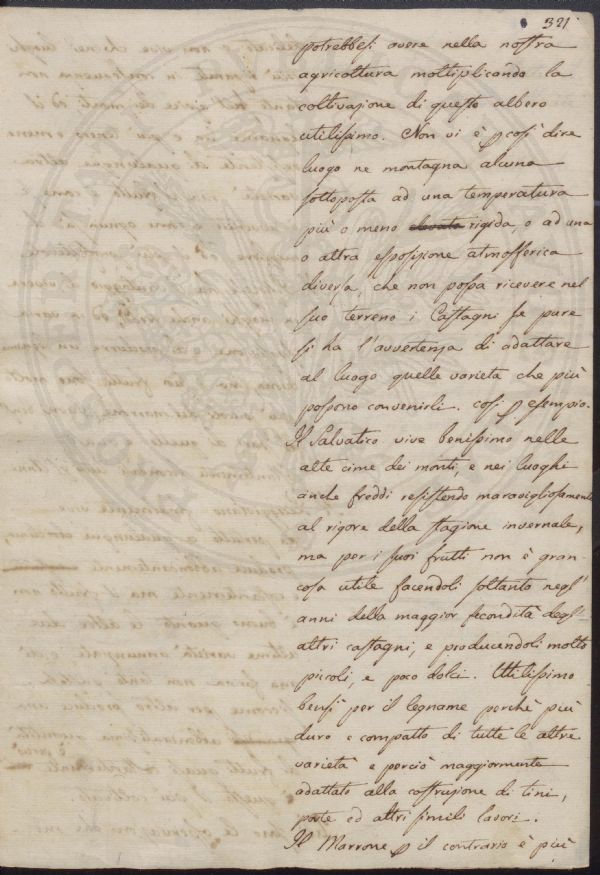 321
potrebbesi avere nella nostra
agricoltura moltiplicando la
coltivazione di questo albero
utilissimo. Non vi è p così dire
luogo ne montagna alcuna
sottoposta ad una temperatura
più o meno elevata rigida, o ad una
o altra esposizione atmosferica
diversa, che non possa ricevere nel
suo terreno i Castagni se pure
si ha l'avvertenza di adattare
al luogo quelle varietà che più
possono convenirli. così p esempio.
Il Salvatico vive benissimo nelle
alte cime dei monti, e nei luoghi
anche freddi resistendo maravigliosamente
al rigore della stagione invernale,
ma per i suoi frutti non è gran-
cosa utile facendoli soltanto negl'
anni della maggior fecondità degl'
altri castagni, e producendoli molto
piccoli, e poco dolci. Utilissimo
bensì per il legname perchè più
duro e compatto di tutte le altre
varietà e perciò maggiormente
adattato alla costruzione di tini,
porte ed altri simili lavori.
Il Marrone p il contrario è più